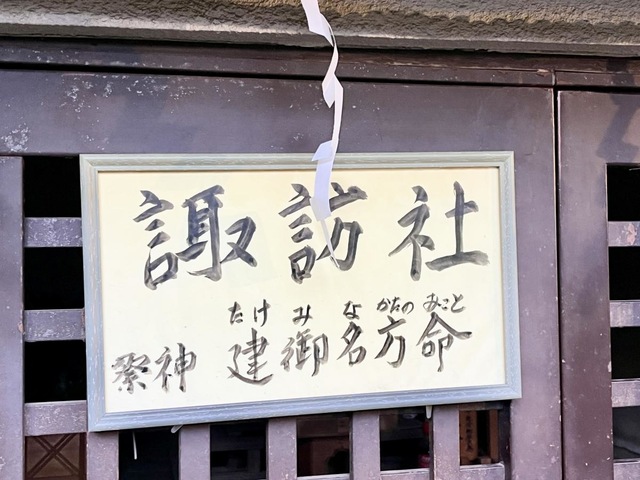 諏訪社
たけ み な かたの みこと
祭神 建御名方命